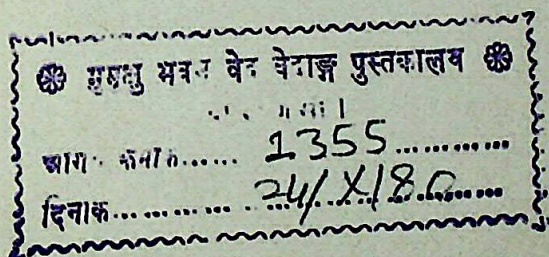 मुमुक्षु भवन वेद वेदाङ्ग पुस्तकालय
आगत क्रमांक...... 1355............
दिनांक............ 24/X/80........